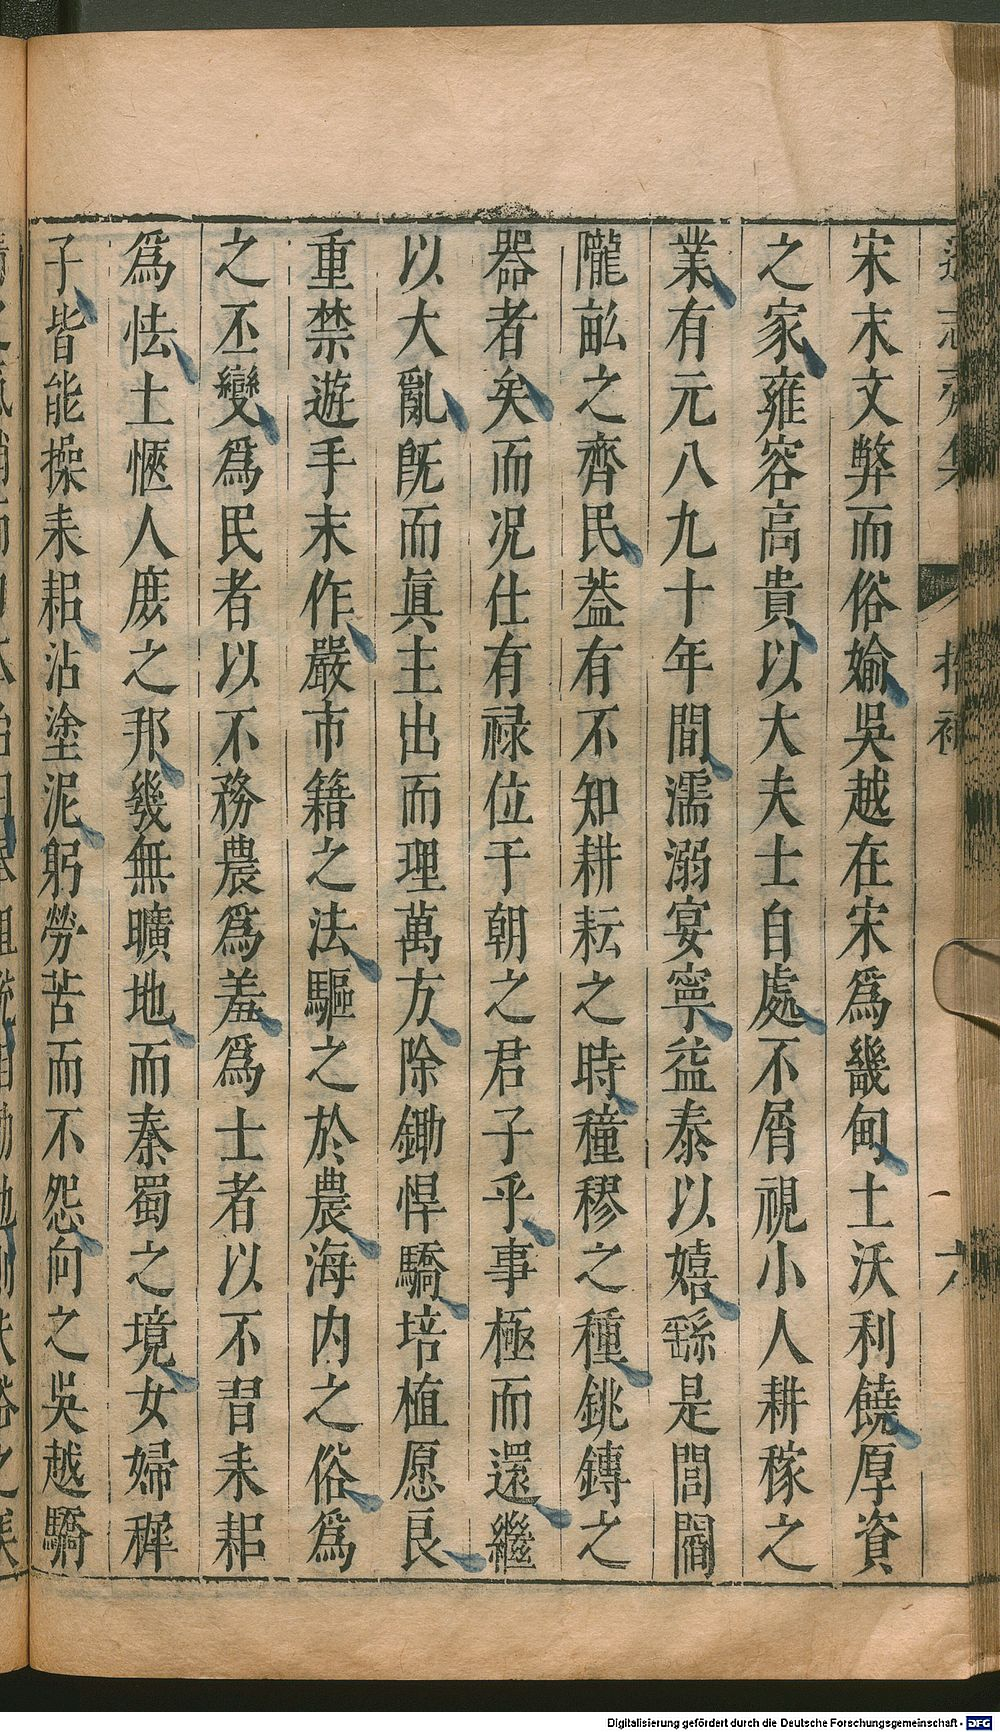 宋末文弊而俗媮吳越在宋爲畿甸土沃利饒厚資
之家雍容高貴以大夫士自處不屑視小人耕稼之
業有元八九十年間濡溺宴寧益泰以嬉繇是閭閻
隴畝之齊民葢有不知耕耘之時穜穋之種銚鎛之
器者矣而况仕有禄位于朝之君子乎事極而還繼
以大亂旣而眞主出而理萬方除鋤悍驕培植愿良
重禁遊手末作嚴市籍之法驅之於農海内之俗爲
之丕變爲民者以不務農爲羞爲士者以不習耒耜
爲怯土愜人庶之邦幾無曠地而秦蜀之境女婦穉
子皆能操耒耜沾塗泥躬勞苦而不怨向之吳越驕
Digitalisierung gefördert durch die Deutsche Forschungsgemeinschaft - DFG